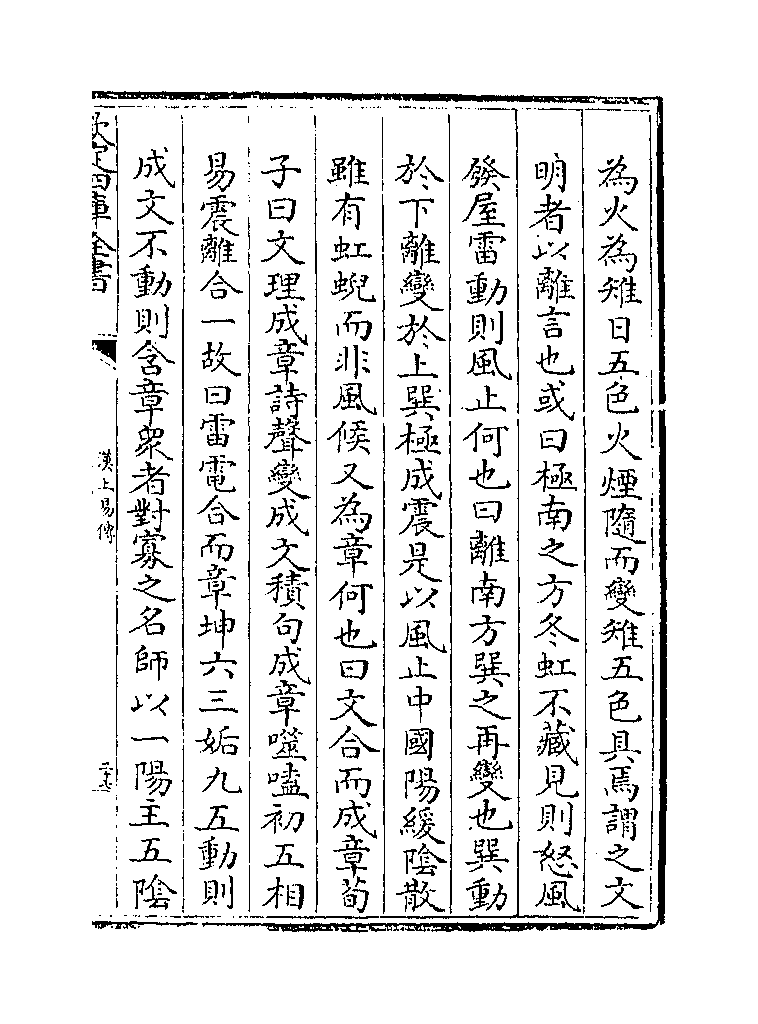 為火為雉日五色火煙隨而變雉五色具焉謂之文
明者以離言也或曰極南之方冬虹不藏見則怒風
發屋雷動則風止何也曰離南方巽之再變也巽動
於下離變於上巽極成震是以風止中國陽緩隂散
雖有虹蜺而非風候又為章何也曰文合而成章荀
子曰文理成章詩聲變成文積句成章噬嗑初五相
易震離合一故曰雷電合而章坤六三姤九五動則
成文不動則含章衆者對寡之名師以一陽主五隂
欽定四庫全書
漢上易傳
二十七